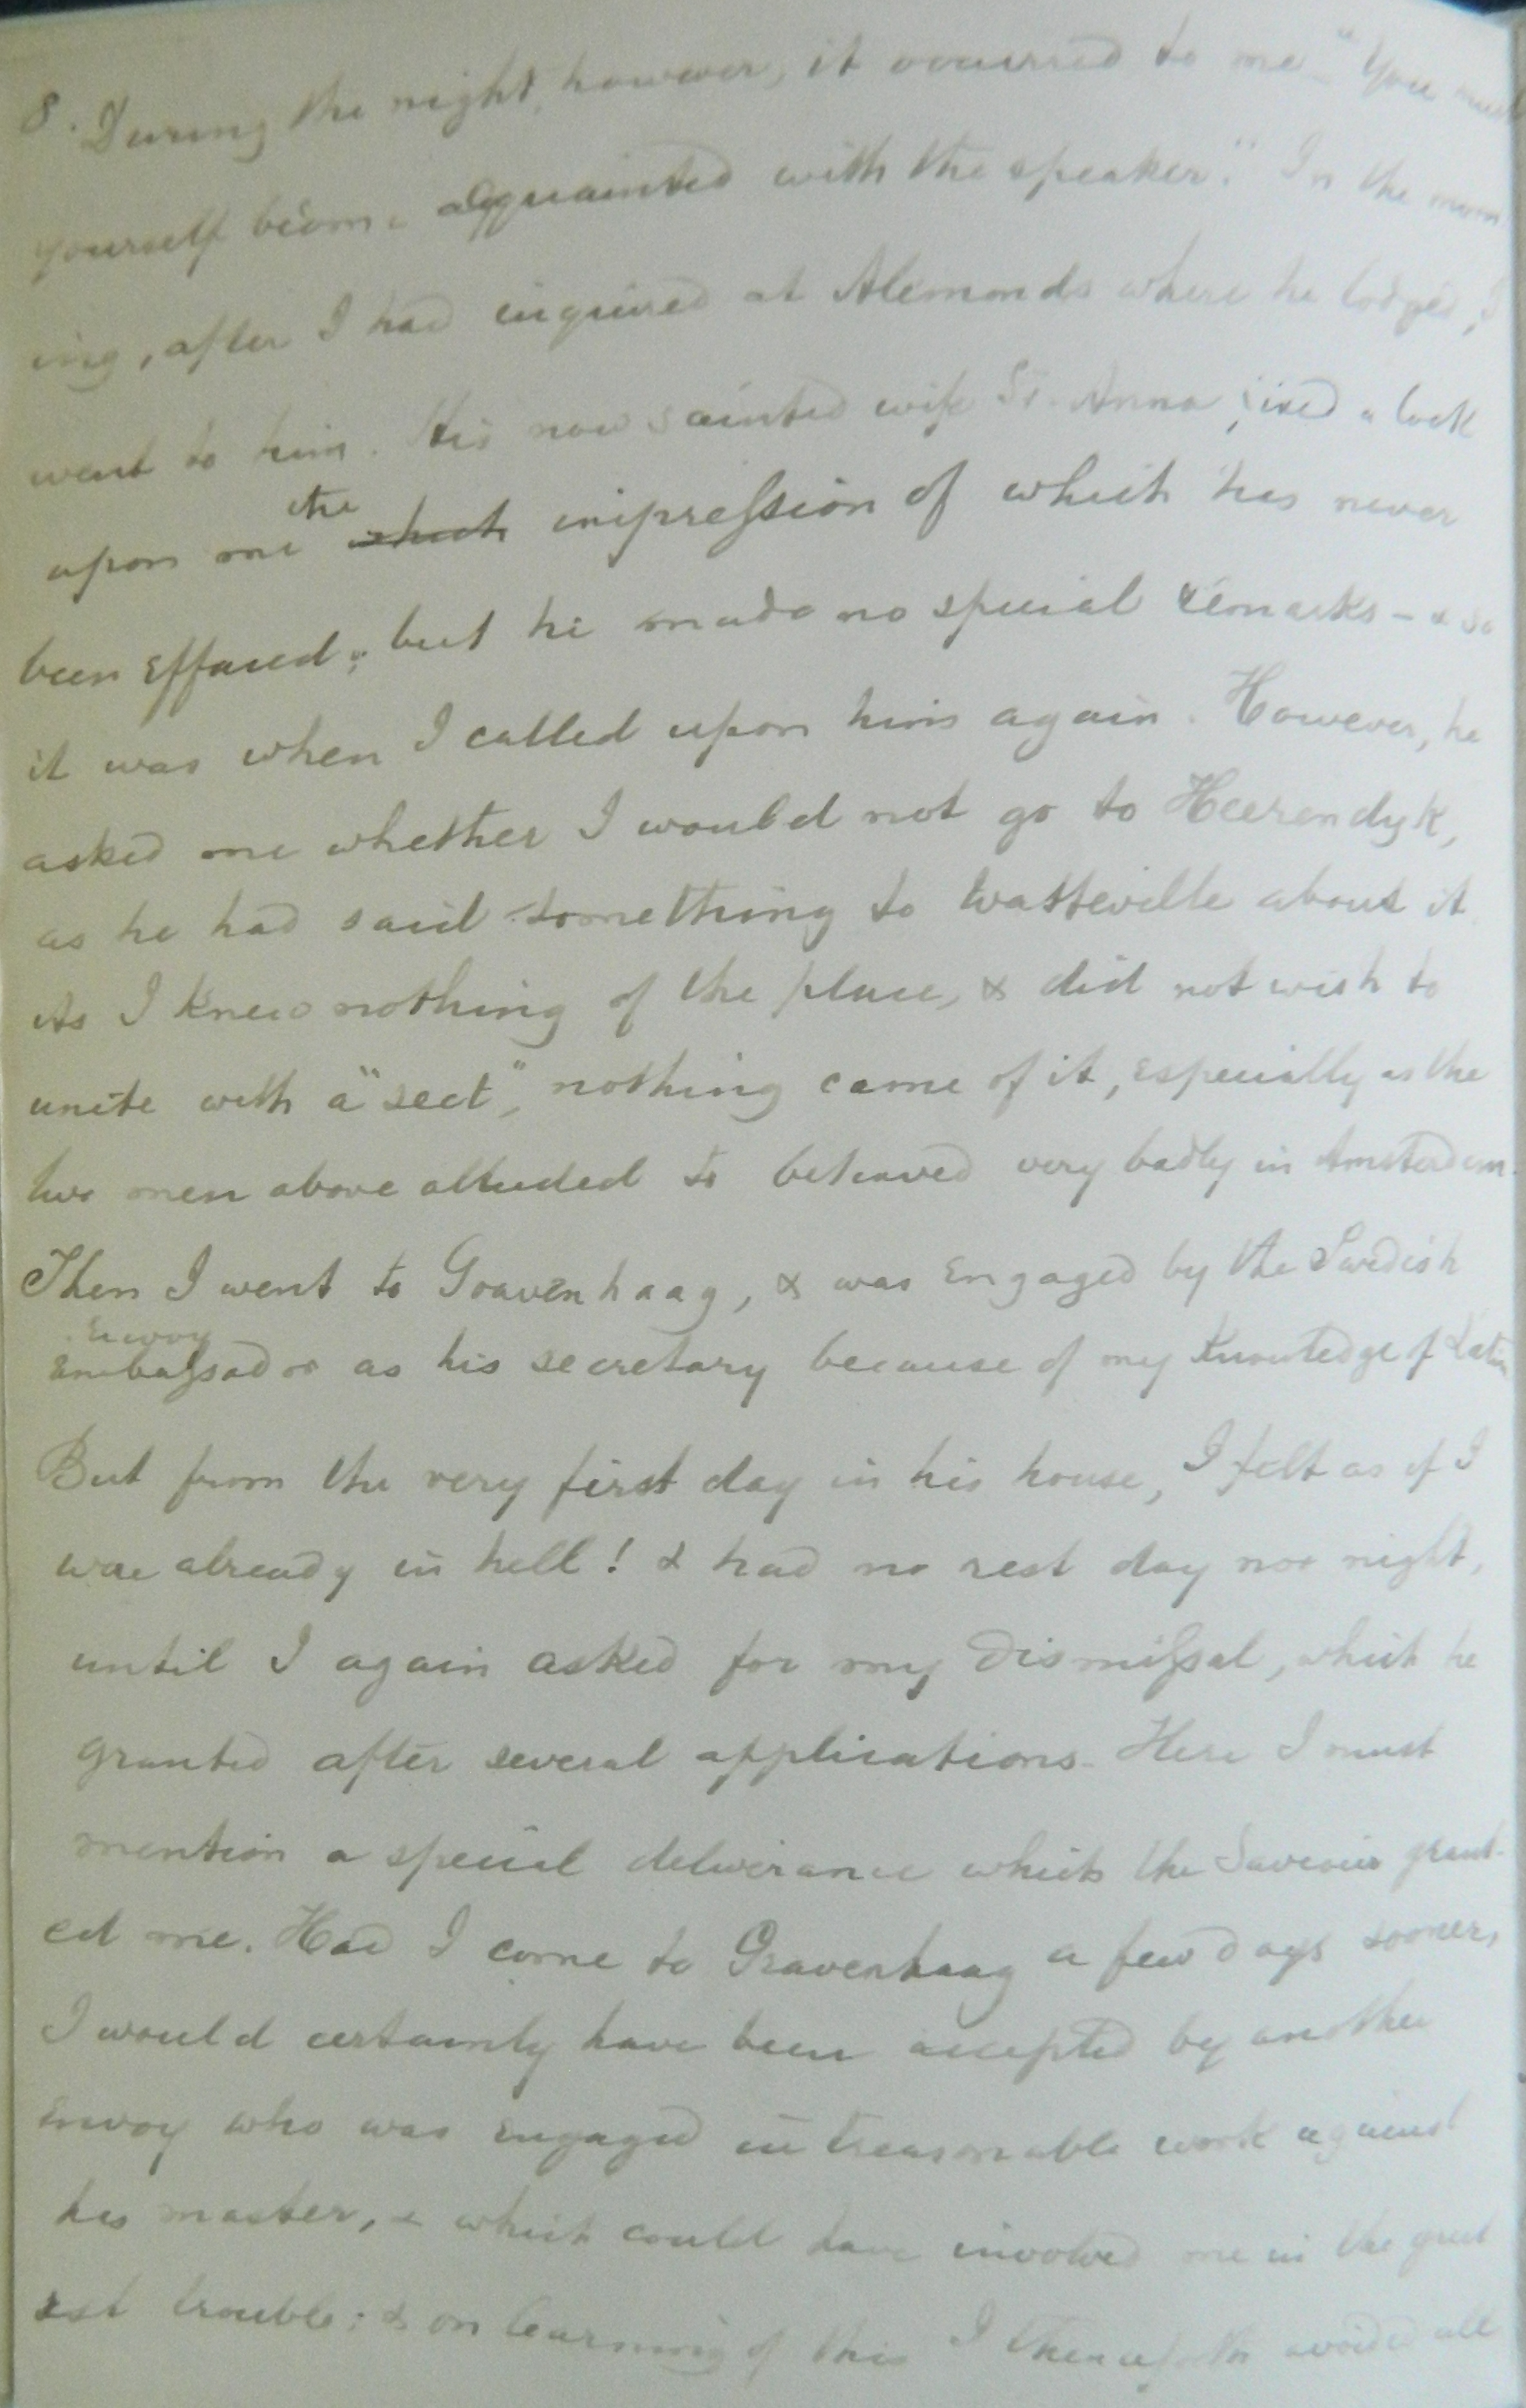 8. During the night, however, it occurred to me "You must
yourself become acquainted with the speaker." In the morn
ing, after I had enquired at Alemonds where he lodged, I
went to him. His now sainted wife Sr. Anna, fixed a look
upon me the which impression of which has never
been effaced; but he made no special remarks - & so
it was when I called upon him again. However, he
asked me whether I would not go to Heerendyk,
as he had said something to Watteville about it.
As I knew nothing of the place, & did not wish to
unite with a "sect", nothing came of it, especially as the
two men above alluded to behaved very badly in Amsterdam.
Then I went to Gravenhaag, & was engaged by the Swedish
Envoy
Embassador as his secretary because of my knowledge of Latin
But from the very first day in his house, I felt as if I
was already in hell! & had no rest day nor night,
until I again asked for my dismissal, which he
granted after several applications. Here I must
mention a special deliverance which the Saviour grant-
ed me. Had I come to Gravenhaag a few days sooner,
I would certainly have been accepted by another
envoy who was engaged in treasonable work against
his master, & which could have involved me in the great
est trouble; & on learning of this I thenceforth avoided all